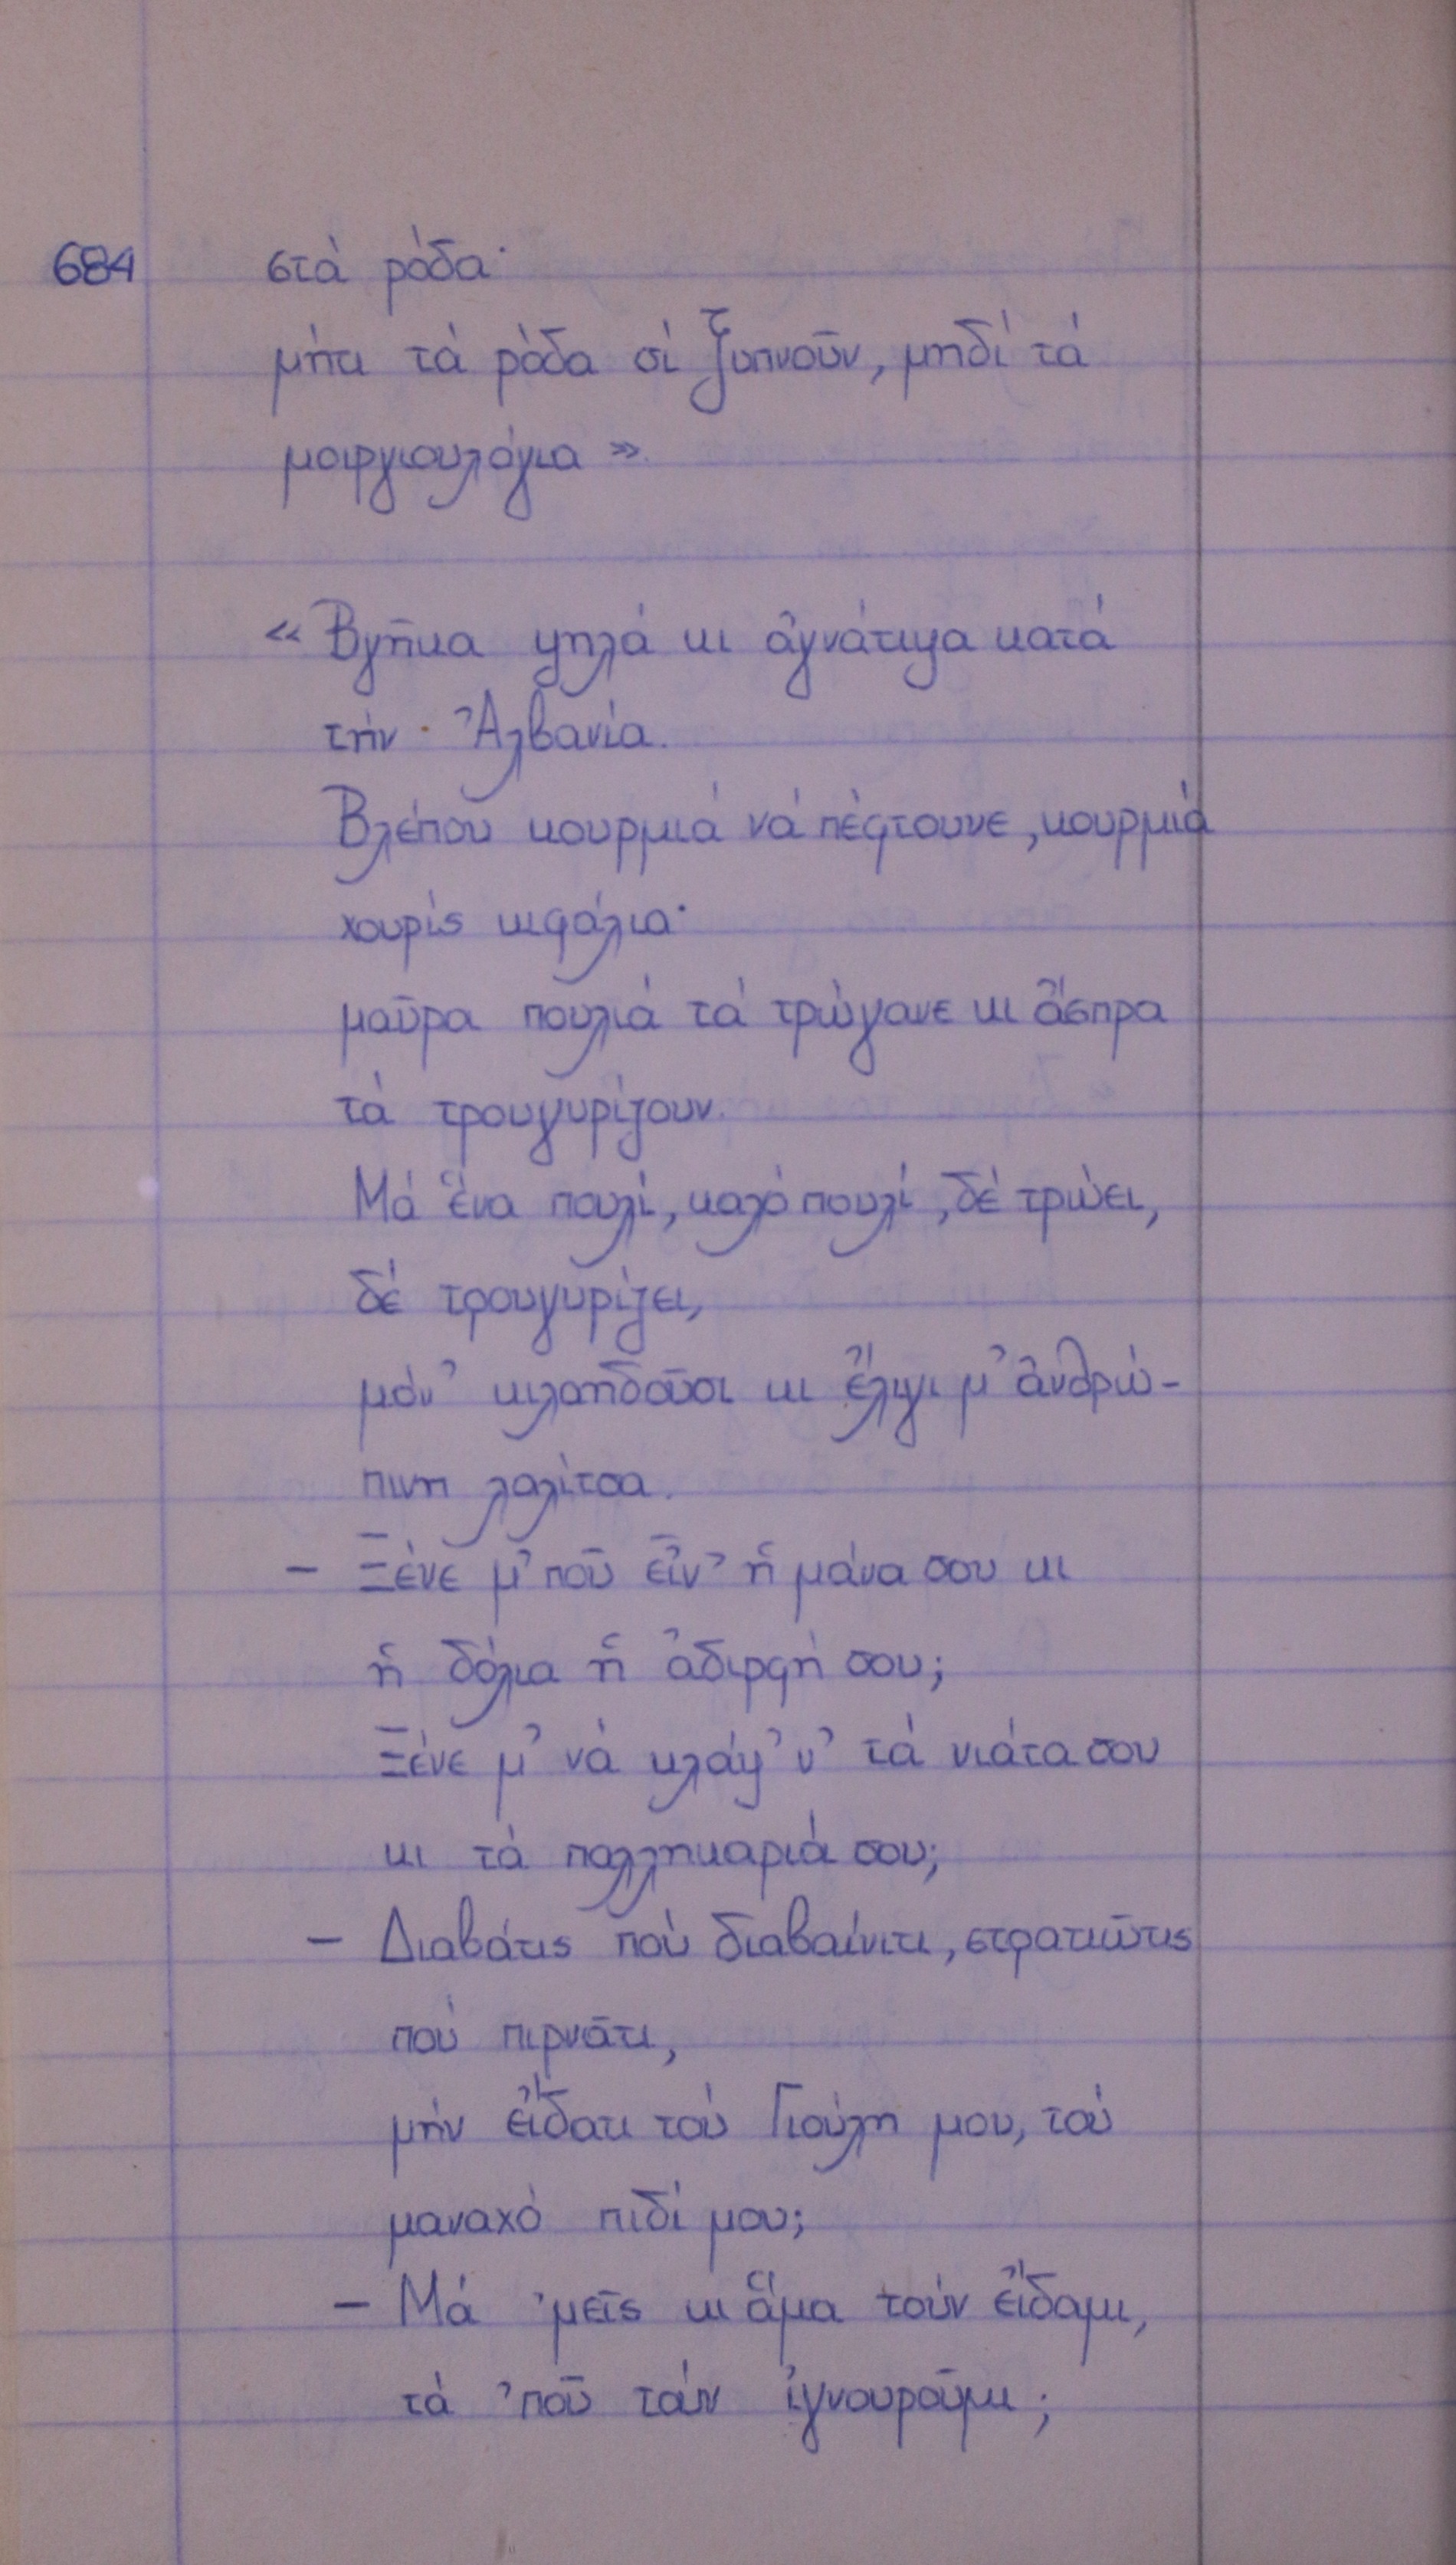 684 στά ρόδα·
μήτι τά ρόδα σί ξυπνοῦν, μηδί τά
μοιργιουλόγια».
«Βγῆκα ψηλά κι ἀγνάτιψα κατά
τήν Ἀλβανία.
Βλέπου κουρμιά νά πέφτουνε, κουρμιά
χουρίς κιφάλια·
μαῦρα πουλιά τά τρώγανε κι ἄσπρα
τά τρουγυρίζουν.
Μά ἕνα πουλί, καλό πουλί, δέ τρώει,
δέ τρουγυρίζει,
μόν' κιλαηδοῦσι κι ἔλιγι μ' ἀνθρώ-
πινη λαλίτσα.
- Ξένε μ' ποῦ εἶν' ἡ μάνα σου κι
ἡ δόλια ἡ ἀδιρφή σου;
Ξένε μ' νά κλάψ'ν' τά νιάτα σου
κι τά παλληκαριά σου;
- Διαβάτις πού διαβαίνιτι, στρατιῶτις
πού πιρνᾶτι,
μήν εἴδατι τού Γιούλη μου, τού
μαναχό πιδί μου;
- Μά 'μεῖς κι ἅμα τούν εἴδαμι,
τά 'ποῦ τάν ἰγνουροῦμι;